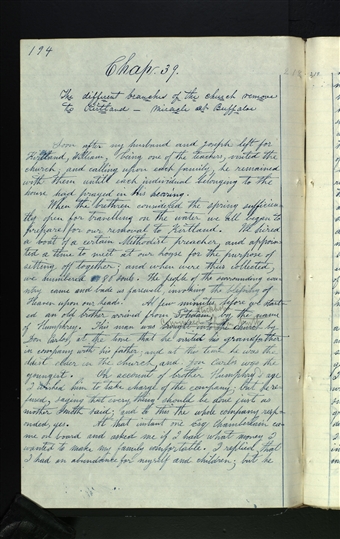 194
Chap. 39.
The different branches of the church remove
to Kirtland — Miracle at Buffaloe
Soon after my husband and Joseph left for
Kirtland, William, being one of the teachers, visited the
church, and calling upon each family, he remained
with them untill each individual belonging to the
house had prayed in his hearing.
When the brethren considered the spring sufficien-
tly open for travelling on the water we all began to
prepare for our removal to Kirtland. We hired
a boat of a certain Methodist preacher, and appoin-
ted a time to meet at our house for the purpose of
setting off together; and when were thus collected,
we numbered 80 souls. The people of the surrounding coun-
try came and bade us farewell, invoking the blessing of
Heaven upon our heads. A few minutes before we start-
ed an old brother arrived from Potsdam, by the name
of Humphrey. This man was brought into the church by
Don Carlos, at the time that he visited his grandfather
in company with his father, and at this time he was the
oldest elder in the church, and Don Carlos was the
youngest. On account of brother Humphrey's age
I wished him to take charge of the company; but he re-
fused, saying that every thing should be done just as
mother Smith said; and to this the whole company resp-
onded, yes. At that instant one Esq Chamberlain ca-
me on board and asked me if I had what money I
wanted to make my family comfortable. I replied, that
I had an abundance for myself and children; but he